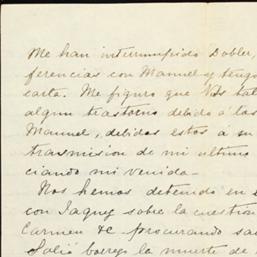 Me han interrumpido Dobler,
ferencias con Manuel y tengo
carta. Me figuro que Vds tal
algun trastorno debido á las
Manuel, debidas estas á su
trasmision de mi ultimo
ciando mi venida.
Nos hemos detenido en
con Jaques sobre la cuestion
Carmen &c procurando sa
Salió borrego la muerte de